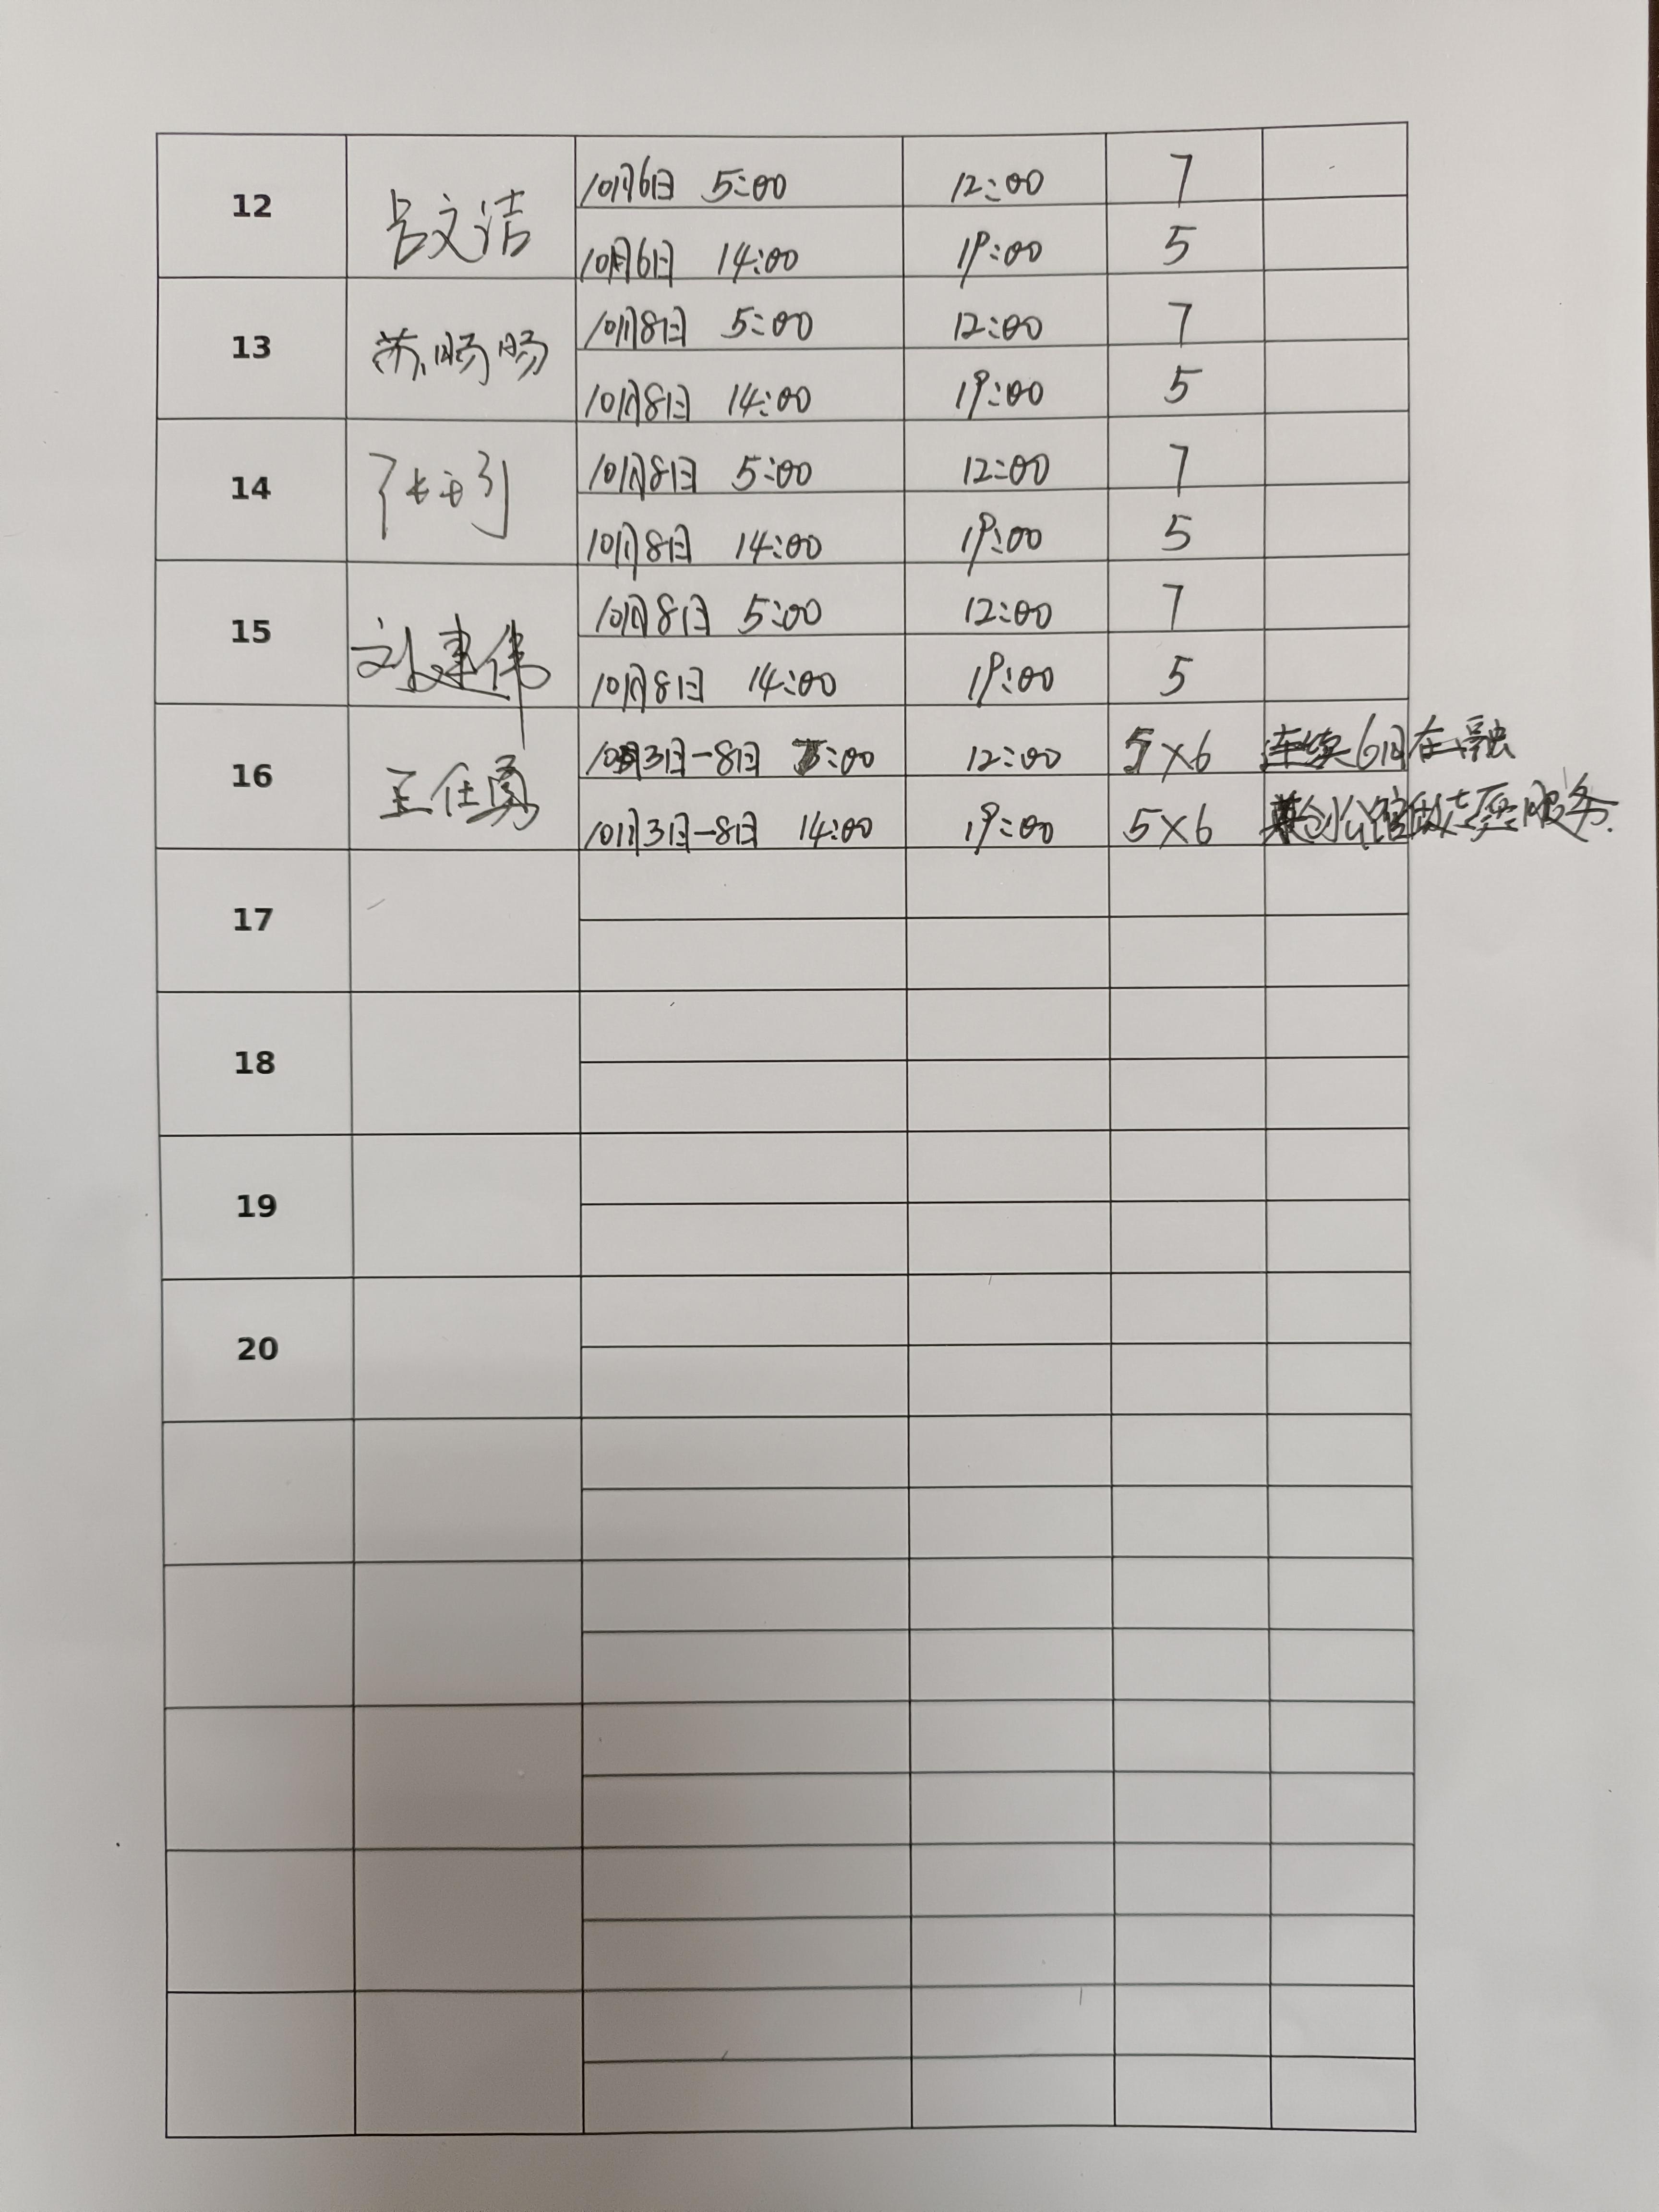 12 吕文洁 10月6日 5:00 12:00 7
10月6日 14:00 19:00 5
13 苏肠肠 10月8日 5:00 12:00 7
10月8日 14:00 19:00 5
14 10月8日 5:00 12:00 7
10月8日 14:00 19:00 5
15 刘建伟 10月8日 5:00 12:00 7
10月8日 14:00 19:00 5
16 王任勇 10月3日-8日 :00 12:00 5×6 连续6日在融
10月3日-8日 14:00 19:00 5×6 创公馆做志愿服务.
17
18
19
20